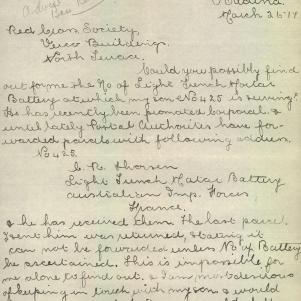 Kadina
March 26 '17
Red Cross Society,
Verco Building,
North Terrace.
Would you possibly find
out for me the No of Light Trench Mortar
Battery at which my son No 425 is serving?
He has recently been promoted Corporal. &
until lately Postal Authorites have for-
warded parcels with following address.
No 425.
C. R. Thorsen
Light Trench Mortar Battery
Australian Imp. Forces
France.
& he has received them. The last parcel
I sent him was returned, stating it
can not be forwarded unless No of Battery
be ascertained. This is impossible for
me alone to find out, & I am most desirous
of keeping in touch with my son & would